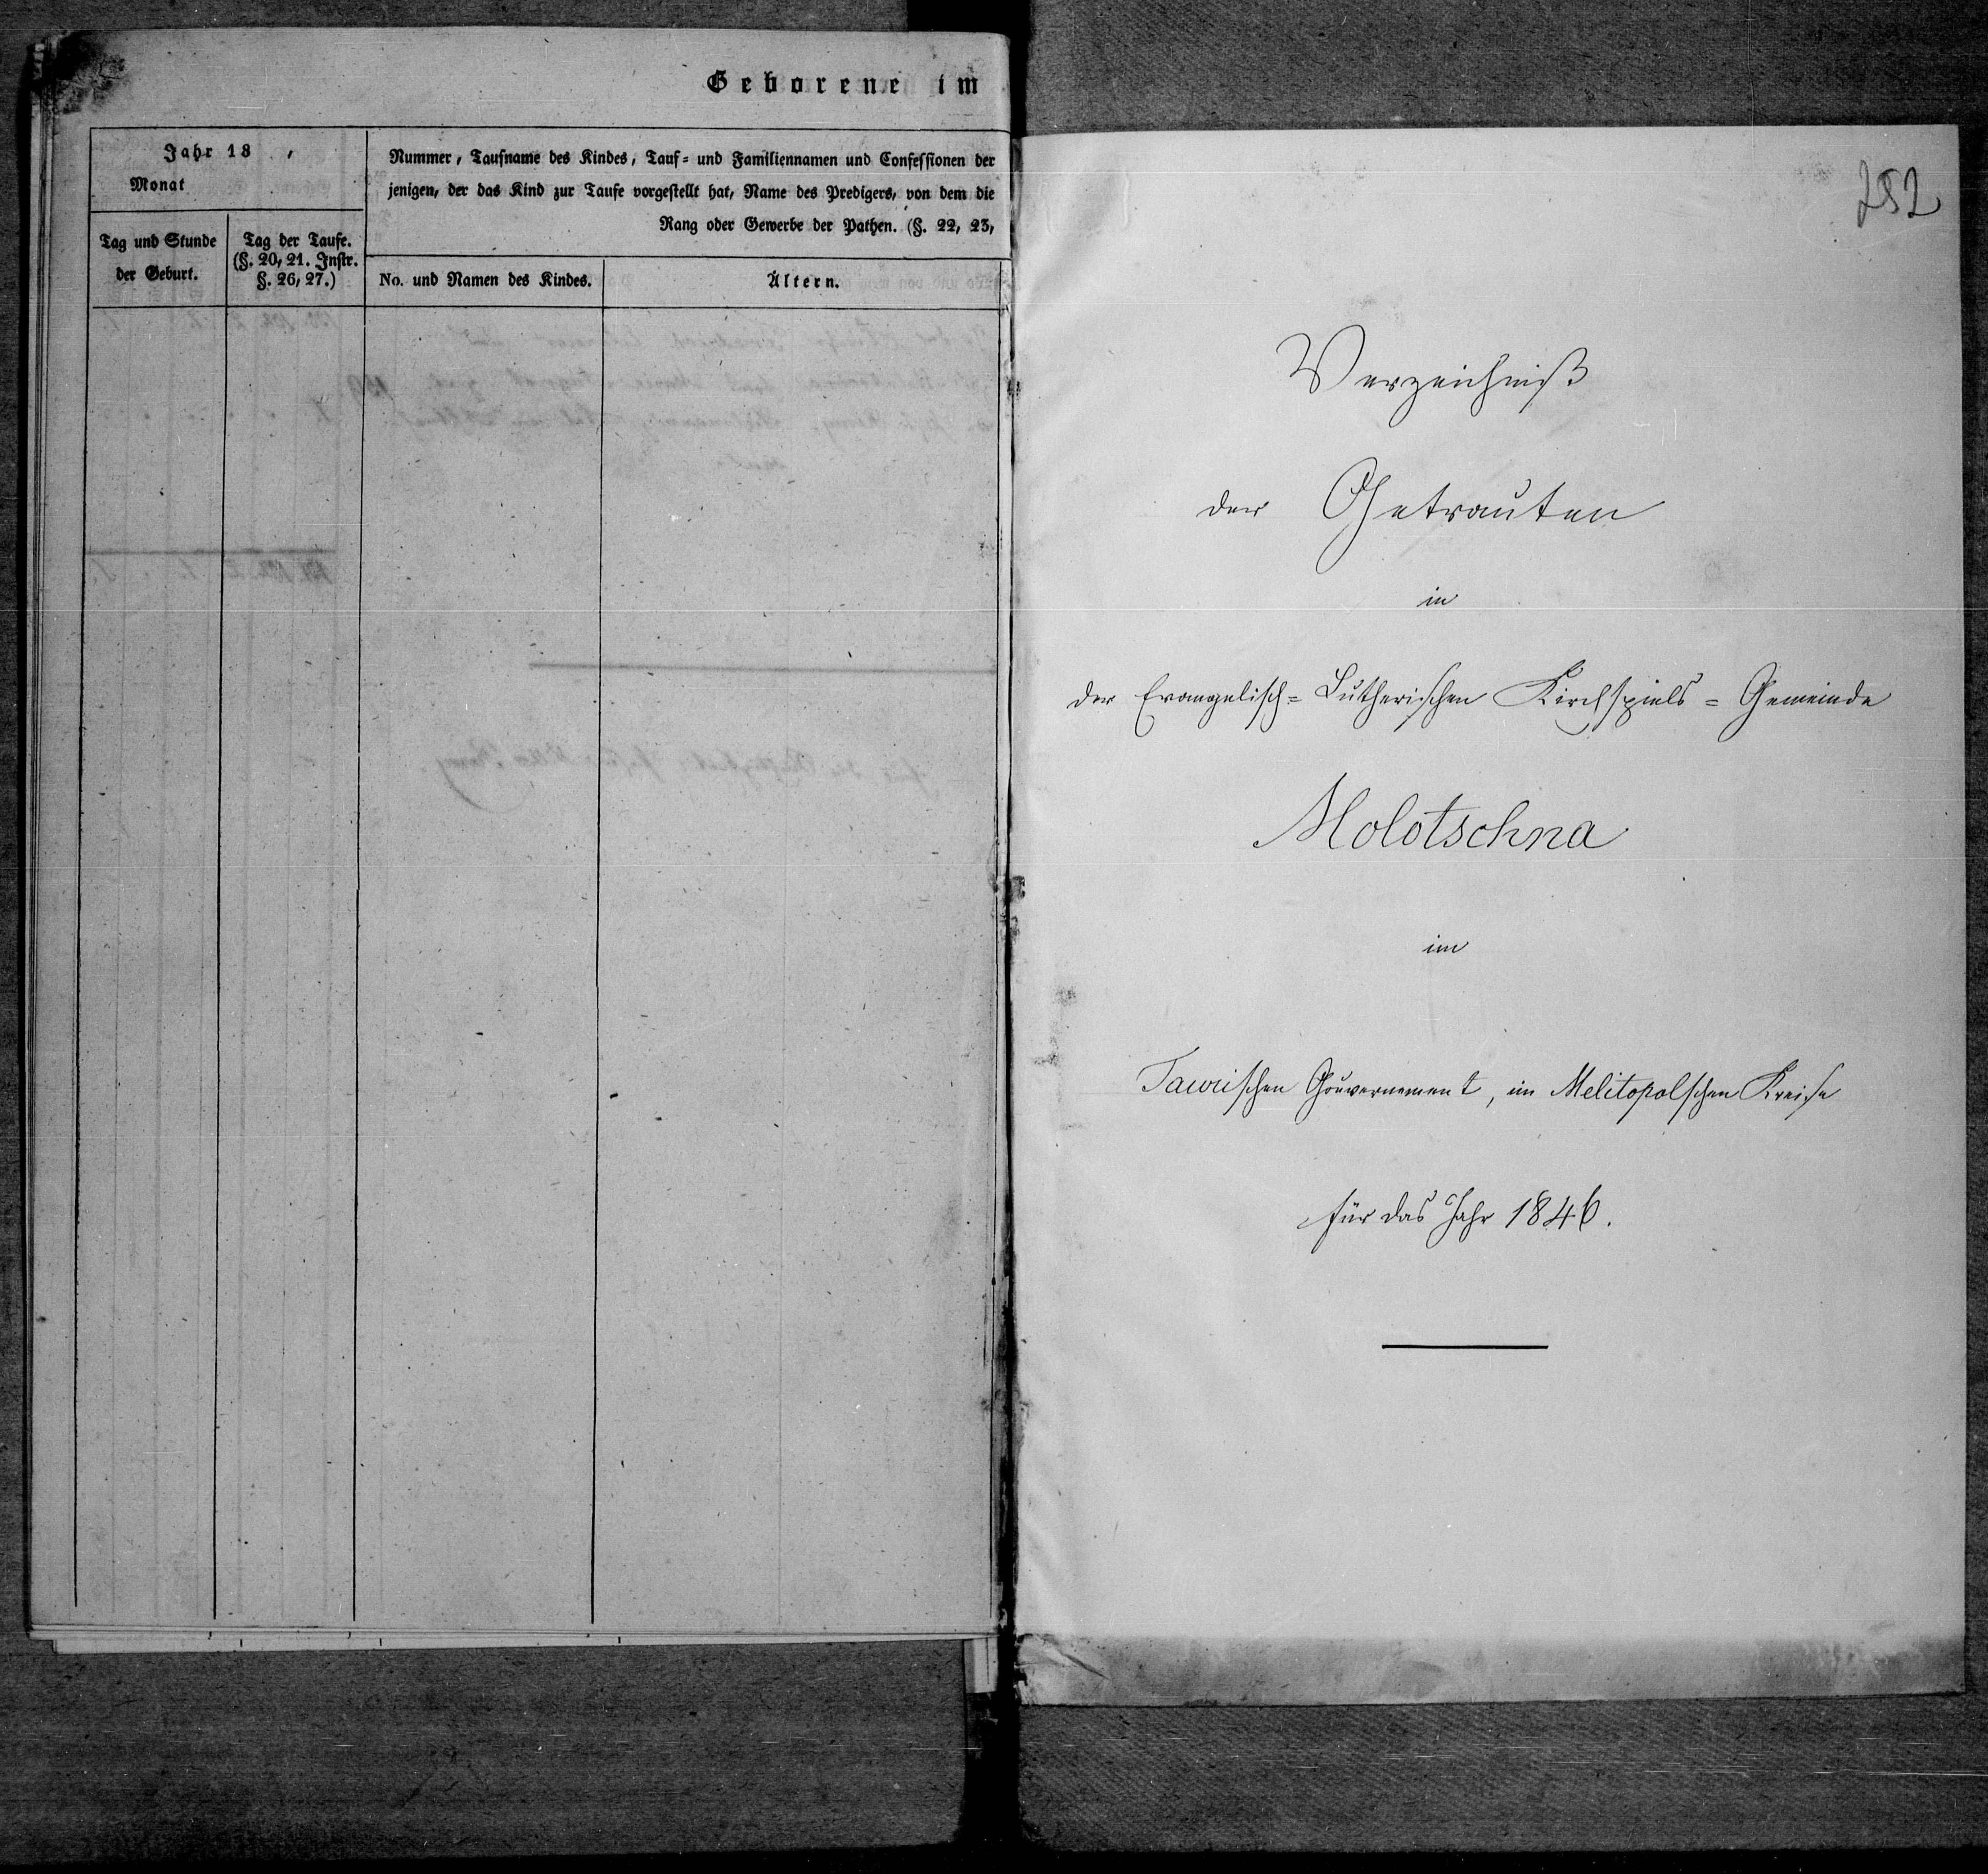 Geborene im
Jahr 18 ,
Monat
Nummer, Taufname des Kindes, Tauf= und Familiennamen und Confessionen der
jenigen, der das Kind zur Taufe vorgestellt hat, Name des Predigers, von dem die
Rang oder Gewerbe der Pathen. (§. 22, 23,
Tag und Stunde
der Geburt.
Tag der Taufe.
(§. 20, 21. Instr.
§. 26, 27.)
No. und Namen des Kindes.
Ältern.
252
Verzeichniß
der Getrauten
in
der Evangelisch=Lutherischen Kirchspiels=Gemeinde
Molotschna
im
Taurischen Gouvernement, im Melitopolschen Kreise
für das Jahr 1846.